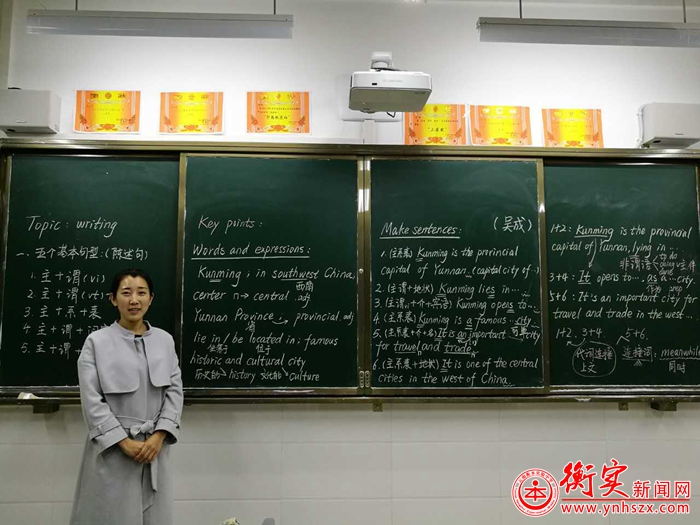 Topic: writing
一、五个基本句型:(陈述句)
1. 主+谓(vi)
2. 主+谓(vt)
3. 主+系+表
4. 主+谓+
5. 主+谓+
Key points:
Words and expressions:
Kunming ; in southwest China,
西南
center n→ central. adj
Yunnan Province ; provincial. adj
省
lie in / be located in ; famous
坐落于 位于
historic and cultural city
历史的→history 文化的→culture
Make sentences: (吴成)
1. (主系表) Kunming is the provincial
capital of Yunnan. (capital city of ..)
2. (主谓+地状) Kunming lies in ...
3. Kunming opens to ...
4. (主系表) Kunming is a famous ... city
5. It is an important city
for travel and trade
6. (主系表+地状) It is one of the central
cities in the west of China.
1+2: Kunming is the provincial
capital of Yunnan, lying in ...
非谓语 to do doing
3+4: It opens to ... as a ... city
作为
5+6: It is an important city for
travel and trade in the west ...
1+2, 3+4 5+6
代词连接 连接词: meanwhile
上文 同时
衡实新闻网
www.ynhszx.com